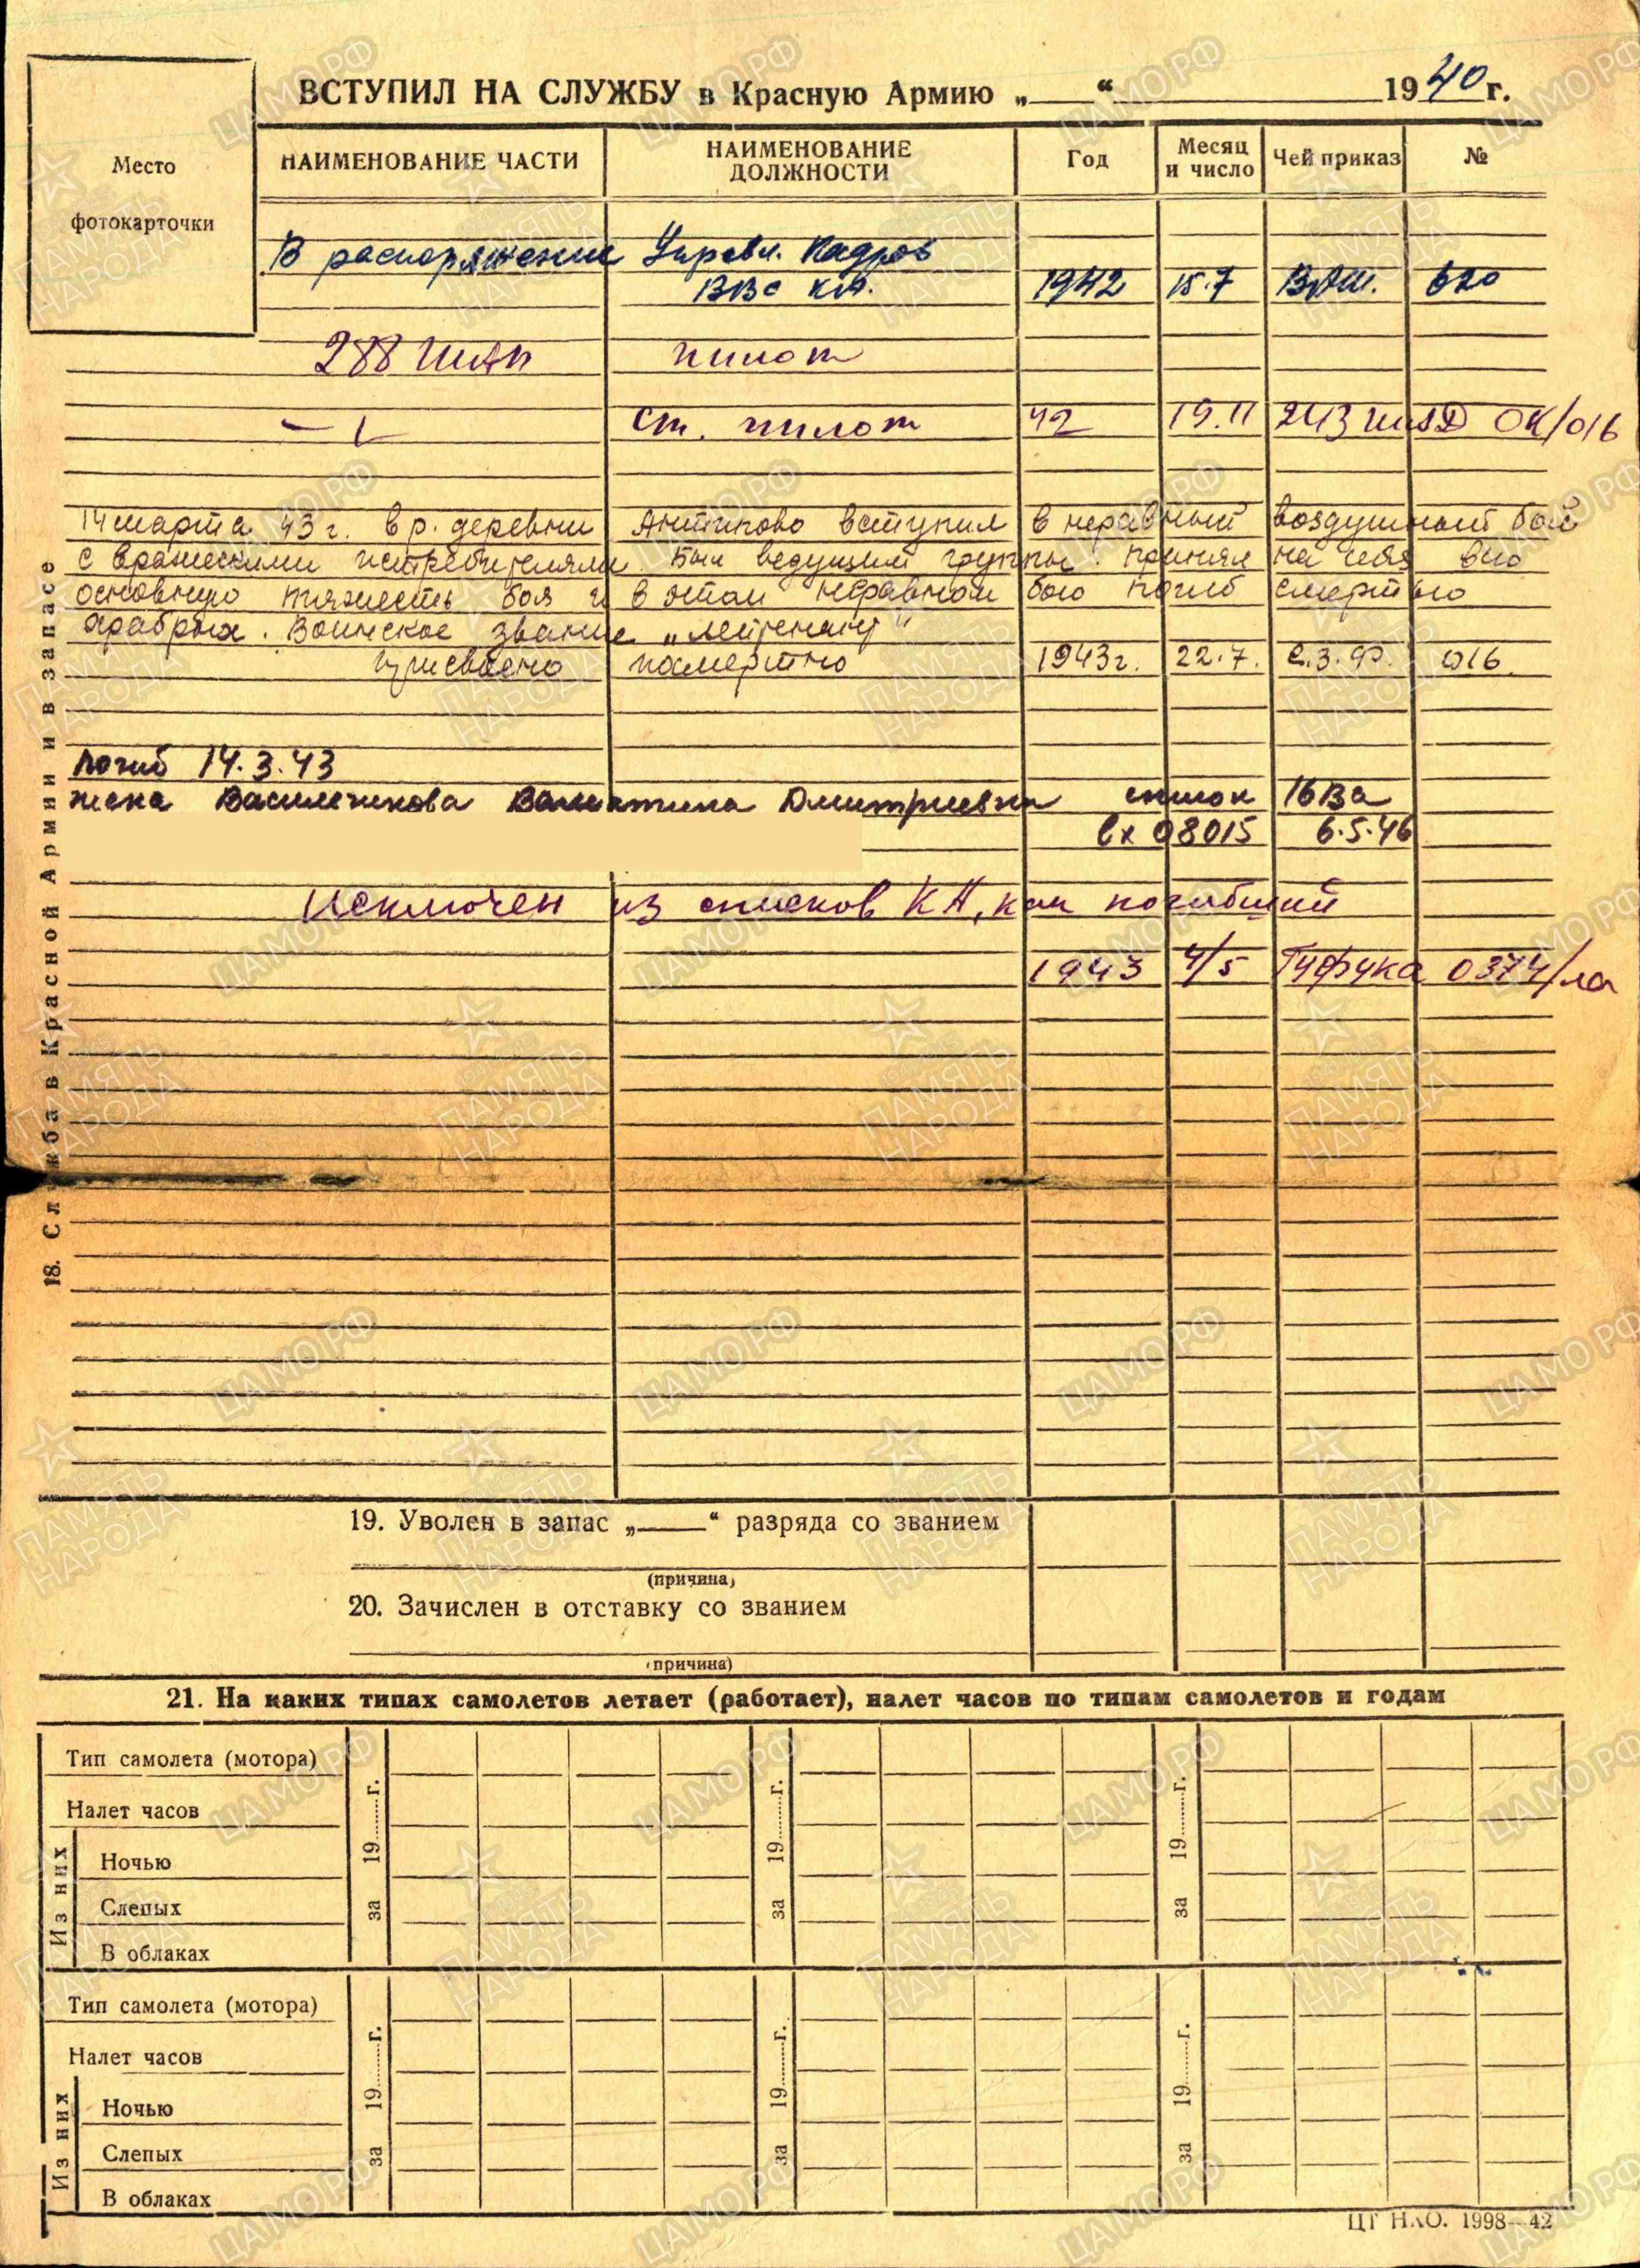 ВСТУПИЛ НА СЛУЖБУ в Красную Армию „ “ 1940 г.
Место фотокарточки
НАИМЕНОВАНИЕ ЧАСТИ НАИМЕНОВАНИЕ ДОЛЖНОСТИ Год Месяц и число Чей приказ №
В распоряжение Управл. Кадров
ВВС КА. 1942 15.7 ВАШ. 620
288 ШАП пилот
ст. пилот 42 19.11 243 ШАД ОК/016
14 марта 43 г. в р. деревни Антипово вступил в неравный воздушный бой
с вражескими истребителями. Был ведущим группы. Принял на себя всю
основную тяжесть боя и в этом неравном бою погиб смертью
храбрых. Воинское звание „лейтенант"
присвоено посмертно 1943 г. 22.7. С.З.Ф. 016
погиб 14.3.43
жена Васильчикова Валентина Дмитриевна список 16 ВА
вх 08015 6.5.46
Исключен из списков КА, как погибший
1943 4/5 Гуфука 0374/ла
18. Служба в Красной Армии и в запасе
19. Уволен в запас „ “ разряда со званием
(причина)
20. Зачислен в отставку со званием
(причина)
21. На каких типах самолетов летает (работает), налет часов по типам самолетов и годам
Тип самолета (мотора)
Налет часов
Из них
Ночью
Слепых
В облаках
за 19 г. за 19 г. за 19 г.
Тип самолета (мотора)
Налет часов
Из них
Ночью
Слепых
В облаках
за 19 г. за 19 г. за 19 г.
ЦТ НКО. 1998—42
ЦАМО.РФ
ПАМЯТЬ НАРОДА